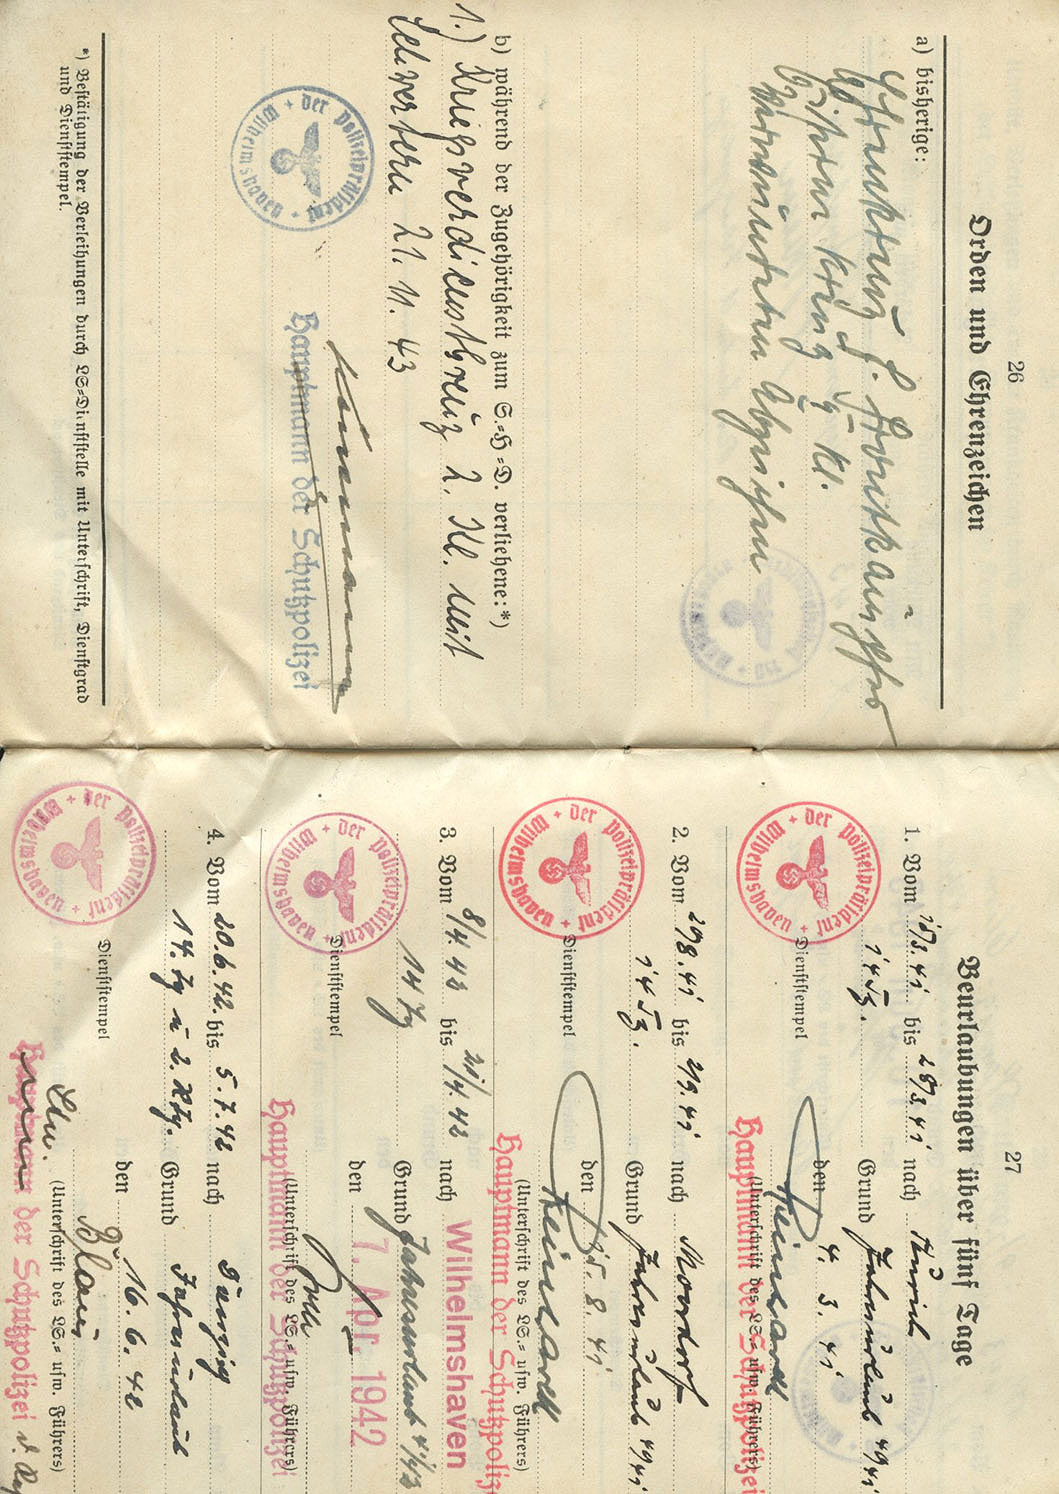 26
Orden und Ehrenzeichen
a) bisherige:
Ehrenkreuz f. Frontkämpfer
Eisernes Kreuz II. Kl.
Verwundeten Abzeichen
b) während der Zugehörigkeit zum S.=H=D. verliehene:*)
1.) Kriegsverdienstkreuz 2. Kl. mit
Schwertern 21. 11. 43
+ der Polizeipräsident + Wilhelmshaven
Hauptmann der Schutzpolizei
*) Bestätigung der Verleihungen durch LS=Dienststelle mit Unterschrift, Dienstgrad
und Dienststempel.
27
Beurlaubungen über fünf Tage
1. Vom 15/3.41 bis 28/3.41 nach
14 Tg. Grund Jahresurlaub 1941
den 4. 3. 41
+ der Polizeipräsident + Wilhelmshaven
Dienststempel
Reinhardt
(Unterschrift des LS.= usw. Führers)
Hauptmann der Schutzpolizei
2. Vom 20/8.41 bis 2/9.41 nach Moordorf
14 Tg. Grund Jahresurlaub 1941
den 15. 8. 41
+ der Polizeipräsident + Wilhelmshaven
Dienststempel
Reinhardt
(Unterschrift des LS.= usw. Führers)
Hauptmann der Schutzpolizei
3. Vom 8/4.42 bis 21/4.42 nach Wilhelmshaven
14 Tg Grund Jahresurlaub
den 7. Apr. 1942
+ der Polizeipräsident + Wilhelmshaven
Dienststempel
(Unterschrift des LS.= usw. Führers)
Hauptmann der Schutzpolizei
4. Vom 20.6.42. bis 5.7.42 nach Danzig
14. Tg u 2. RTg. Grund Jahresurlaub
den 16. 6. 42
+ der Polizeipräsident + Wilhelmshaven
Dienststempel
(Unterschrift des LS.= usw. Führers)
Hauptmann der Schutzpolizei